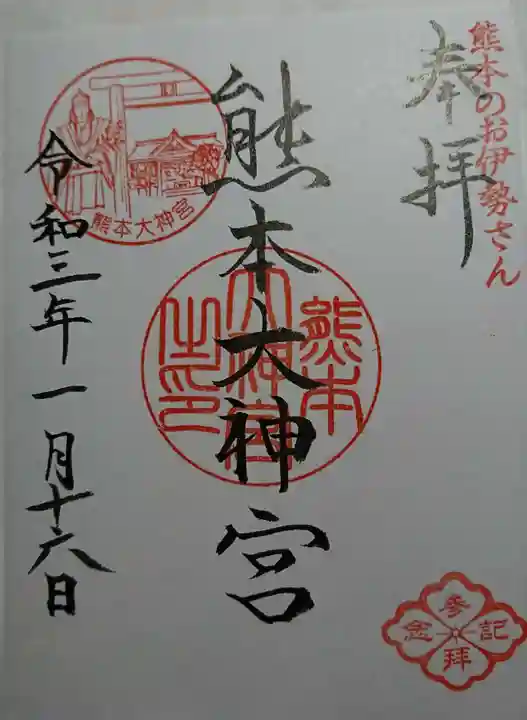 熊本のお伊勢さん
奉拝
熊本大神宮
熊本大神宮之印
熊本大神宮
令和三年一月十六日
参拝記念